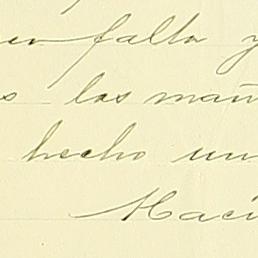 falta y
las mañ
hecho un
Haci